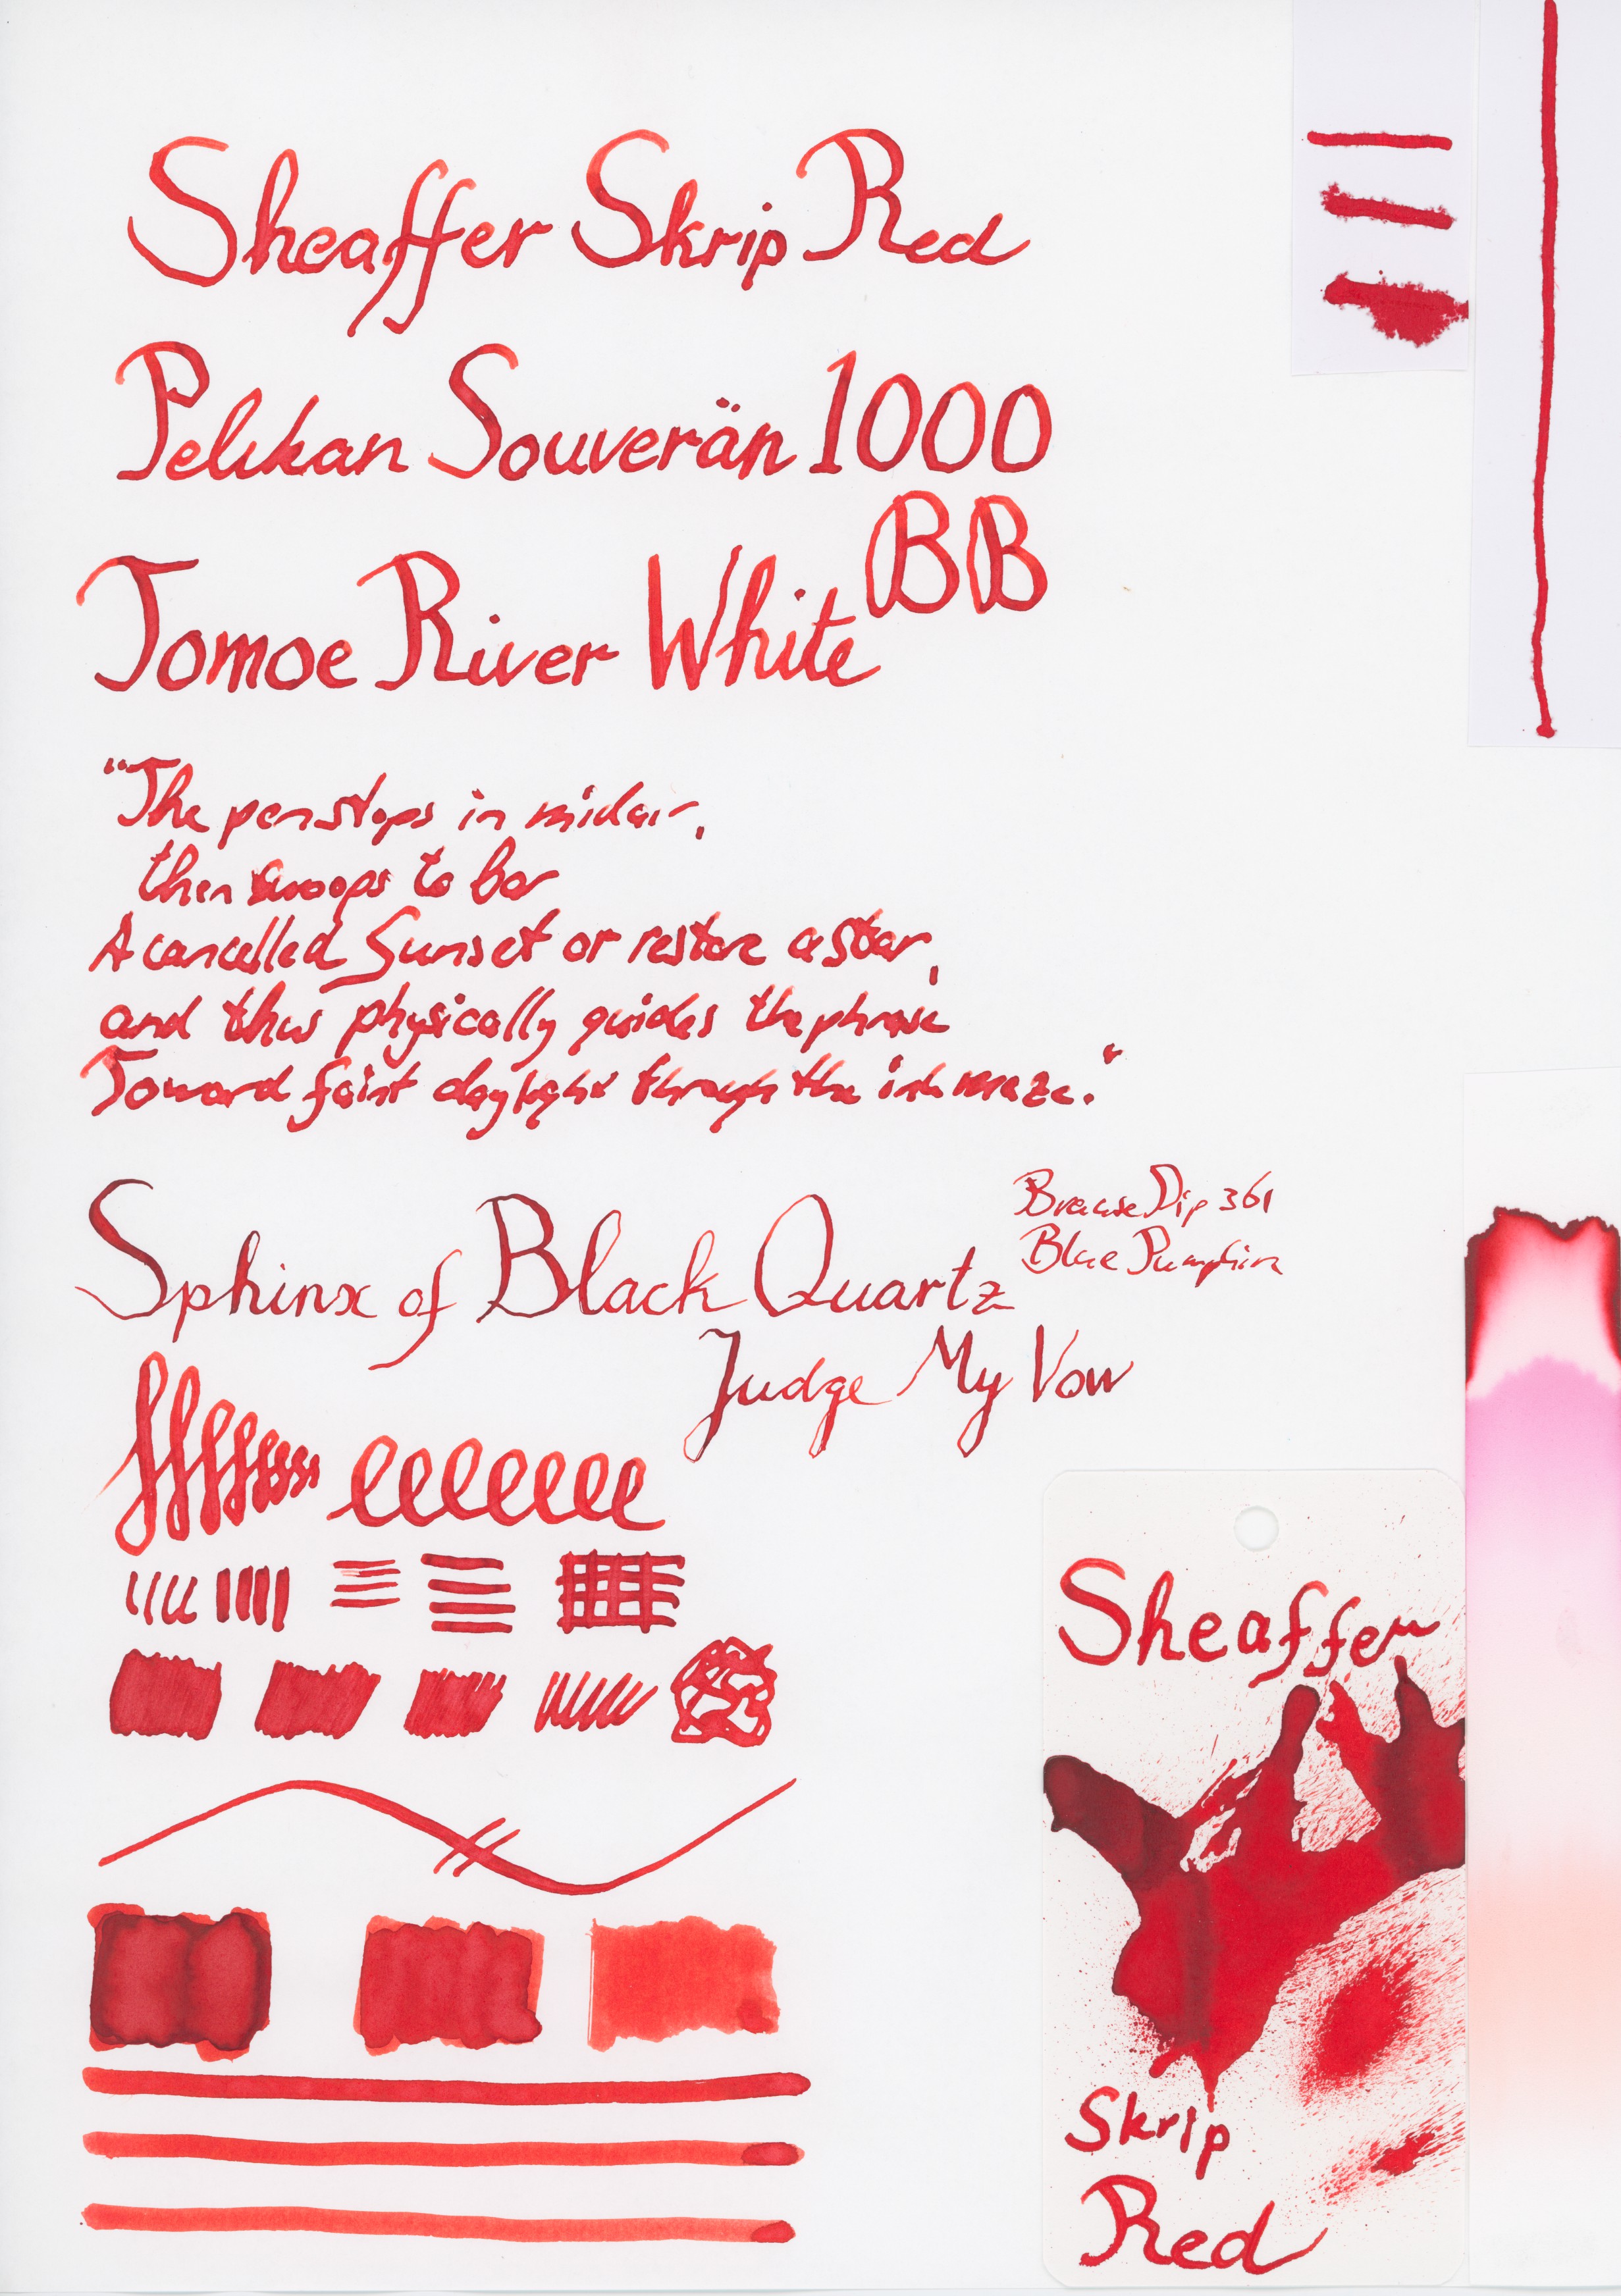 Sheaffer Skrip Red
Pelikan Souverän 1000
BB
Tomoe River White
"The pen stops in midair,
then swoops to bar
A cancelled Sunset or restore a Star,
and thus physically guides the phrase
Toward faint daylight through the ink maze."
Sphinx of Black Quartz
Brause Dip 361
Blue Pumpkin
Judge My Vow
Sheaffer
Skrip
Red